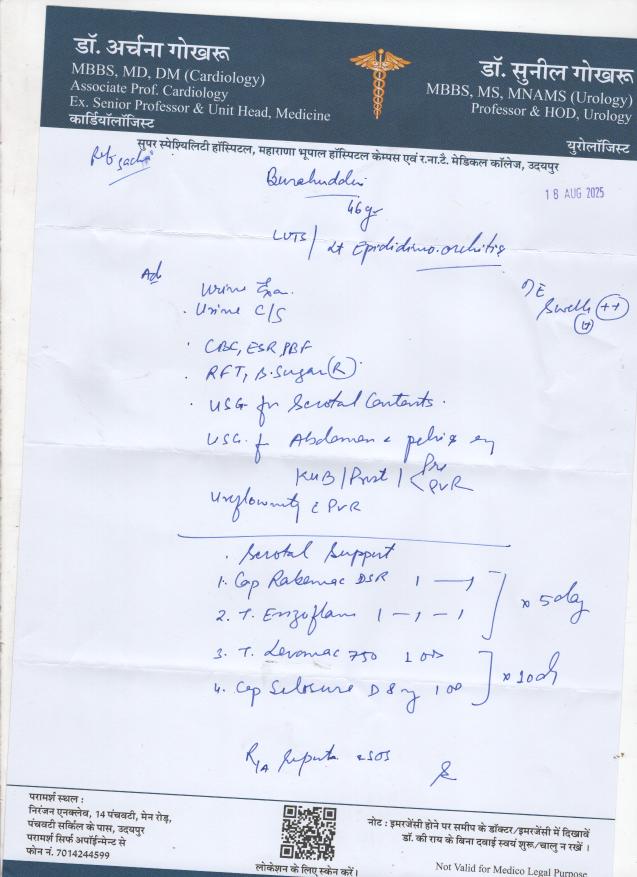 डॉ. अर्चना गोखरू
MBBS, MD, DM (Cardiology)
Associate Prof. Cardiology
Ex. Senior Professor & Unit Head, Medicine
कार्डियॉलॉजिस्ट
डॉ. सुनील गोखरू
MBBS, MS, MNAMS (Urology)
Professor & HOD, Urology
युरोलॉजिस्ट
सुपर स्पेश्यिलिटी हॉस्पिटल, महाराणा भूपाल हॉस्पिटल केम्पस एवं र.ना.टै. मेडिकल कॉलेज, उदयपुर
18 AUG 2025
Burahuddin
46 yr
LUTS / Lt Epididimo-orchitis
Adv
Urine Exa.
Urine C/S
O/E
Swell (++)
CBC, ESR, PBF
RFT, B. Sugar (R)
USG for Scrotal Contents.
USG for Abdomen & pelvis
KUB / Prost / < Pre
PVR
Uroflowmetry c PVR
Scrotal Support
1. Cap Rakemac DSR 1 — 1
2. T. Enzoflam 1 - 1 - 1
x 5 day
3. T. Levomac 750 1 OD
4. Cap Silosure D 8 mg 1 OD
x 10 d
R/A Reports & SOS
परामर्श स्थल :
निरंजन एनक्लेव, 14 पंचवटी, मेन रोड़,
पंचवटी सर्किल के पास, उदयपुर
परामर्श सिर्फ अपॉईन्मेन्ट से
फोन नं. 7014244599
लोकेशन के लिए स्केन करें।
नोट : इमरजेंसी होने पर समीप के डॉक्टर/इमरजेंसी में दिखावें
डॉ. की राय के बिना दवाई स्वयं शुरू/चालु न रखें ।
Not Valid for Medico Legal Purpose